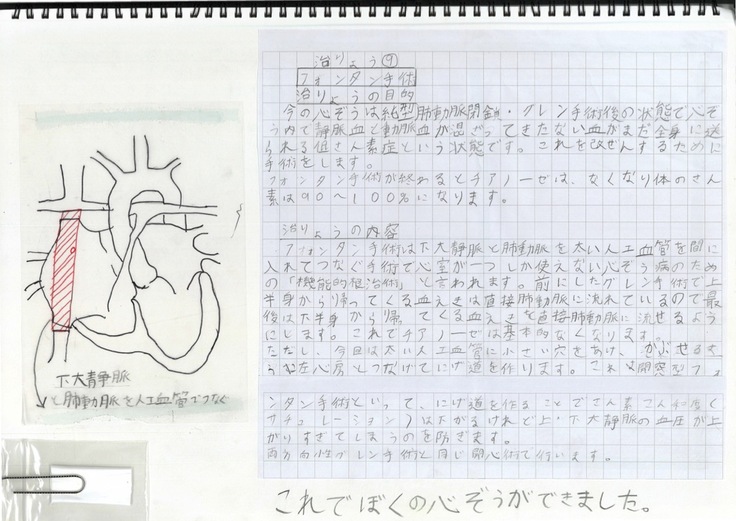 治りょう⑨
フォンタン手術
治りょうの目的
今の心ぞうは純型肺動脈閉鎖・グレン手術後の状態で心ぞ
う内で静脈血と動脈血が混ざってきたない血がまだ全身に送
られる低さん素症という状態です。これを改ぜんするために
手術をします。
フォンタン手術が終わるとチアノーゼは、なくなり体のさん
素は90〜100%になります。
治りょうの内容
フォンタン手術は下大静脈と肺動脈を太い人工血管を間に
入れてつなぐ手術で心室が一つしか使えない心ぞう病のため
の「機能的根治術」と言われます。前にしたグレン手術で上
半身から帰ってくる血えきは直接肺動脈に流れているので最
後は下半身から帰ってくる血えきを直接肺動脈に流せるよう
にします。これでチアノーゼは基本的なくなります
ただし、今回は太い人工血管に小さい穴をあけ、かぶせる
左心房とつなげてにげ道を作ります。これは開窓型フォ
ンタン手術といって、にげ道を作ることでさん素
サチュレーション)は下がるけれど上・下大静脈の血圧が上
がりすぎてしまうのを防ぎます。
両方向性グレン手術と同じ開心術で行います。
下大静脈
と肺動脈を人工血管でつなぐ
これでぼくの心ぞうができました。